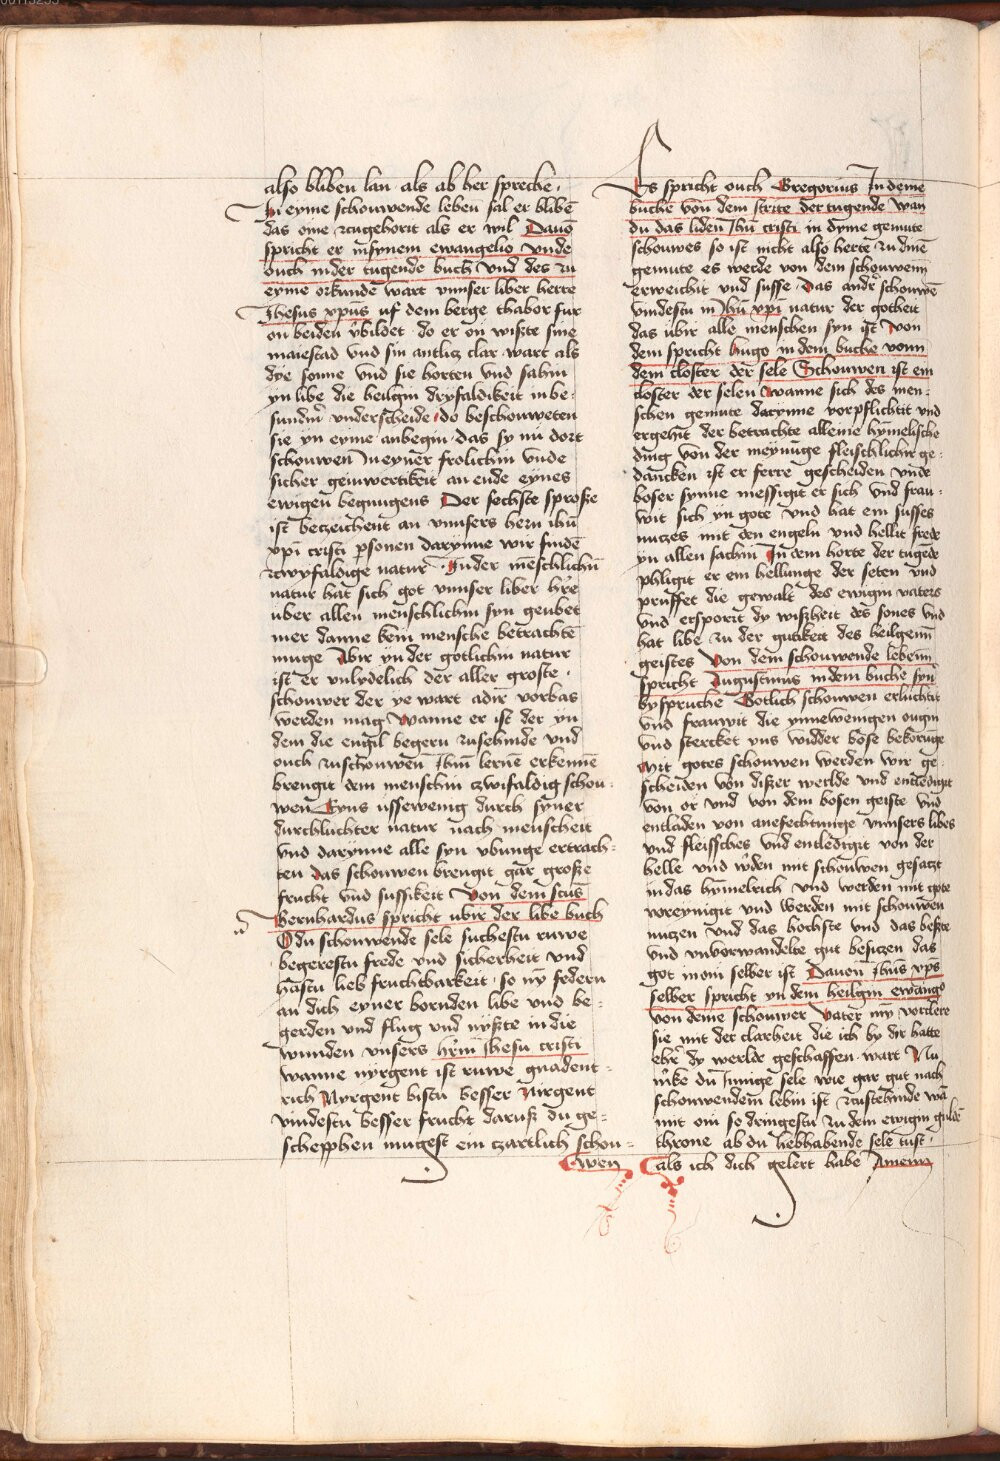 also bliben lan · als ab her spreche ·
In eyme schouwende leben sal er blibē
das ome zcugehorit als er wil Dauō
spricht er in synem ewangelio vnde
ouch in der tugende buch vnd des zu
eyme orkunde wart vnnser liber herre
Jhesus xpūs uf dem berge thabor fur
on beiden v̄bildet · do er on wißte sine
maiestad vnd sin antlicz clar wart als
dye sonne vnd sie horten vnd sahin
yn libe die heilgin dryfaldikeit in be-
sundir vnderscheide · do beschouweten
sie yn eyme anbegin · das sy nu dort
schouwen In eyner frolichin vnde
sicher geinwertikeit an ende eynes
ewigen begnugens Der sechste sproße
ist beczeichent an vnnsers hern ihū
xpī cristi personen darynne wir findē
zcwyfaldige natur · In der mēschlichn̄
natur hat sich got vnnser liber hr̄e
uber allen menschlichin syn geubet
mer danne kein mensche betrachtē
muge Abir yn der gotlichin natur
ist er vnlydelich der aller groste ·
schouwer der ye wart adir vorbas
werden mag Wanne er ist der yn
dem die engil begern zusehinde vnd
ouch zuschouwen̄ Ihm̄ lernē erkennē
brengit dem menschin czwifaldig schou-
wen Eyns usserwenig durch syner
durchluchter natur nach menscheit
vnd darynne alle syn vbunge ertrach-
ten das schouwen brengit gar große
frucht vnd sussikeit Von dem scūs
Bernhardus spricht ubir der libe buch
O du schouwende sele suchestu ruwe
begerestu frede vnd sicherheit vnd
hastu lieb fruchtbarkeit · so ny̅ federn
an dich eyner bornden libe vnd be-
gerden vnd flug vnd nyßte in die
wunden vnsers hr̄in Ihesu cristi
wanne nyrgent ist ruwe gnadent-
rich Nyrgent bistu besser Nirgent
vindestu besser frucht daruß du ge-
schepphen mugest ein czartlich schou-
wen
Es spricht ouch Gregorius In deme
buche von dem strite der tugende wan
du das liden Ihū cristi in dyme gemute
schouwes so ist nicht also herte zu dinē
gemute es werde von dem schouwenn
erweichit vnd susse · Das andr̄ schouwē
vindestu in Ihū xpī natur der gotheit
das ubir alle menschen syn ist Von
dem spricht hugo in dem buche vonn
dem closter der sele Schouwen ist ein
closter der selen Wanne sich des men-
schen gemute darynne vorpflichtit vnd
ergehit der betrachte alleine hymelische
ding von der meynūge fleischlichir ge-
dancken ist er ferre gescheiden vnde
boser synne messigit er sich vnd frau-
wit sich yn gote vnd hat ein susses
nuczes mit den engeln vnd hellit frede
yn allen sachin In dem horte der tugēde
phligit er ein hellunge der seten vnd
pruffet die gewalt des ewigin vaters
vnd ersporit dy wißheit des sones vnd
hat libe zu der gutikeit des heilgenn
geistes Von dem schouwende lebenn
spricht Augustinus in dem buche syn̄
byspruche Gotlich schouwen erluchtit
vnd frauwit die ynnewenigen ougin
vnd stercket vns widder bose bekorūge
Mit gotes schouwen werden wir ge-
scheiden von dißer werlde vnd entledigit
von or vnd von dem bosen geiste vnd
entladen von anefechtunge vnnsers libes
vnd fleissches vnd entledigit von der
helle vnd w̄den mit schouwen gesaczt
in das hymelrich vnd werden mit gote
voreynigit vnd werden mit schouwen
nuczen vnd das hochste vnd das beste
vnd vnvorwandelte gut besiczen das
got in om selber ist Dauon Ihūs xpūs
selber spricht yn dem heilgin ewangº
von deme schouwer Vater my vorclere
sie mit der clarheit die ich by dir hatte
ebir dy werlde geschaffen wart Nu
m̄ke du Innige sele wie gar gut nach
schouwendem lebin ist zcustehinde wā
mit om so dringestu zu dem ewigin guldē
throne ab du liebhabende sele tust ·
als ich dich gelert habe Amenn